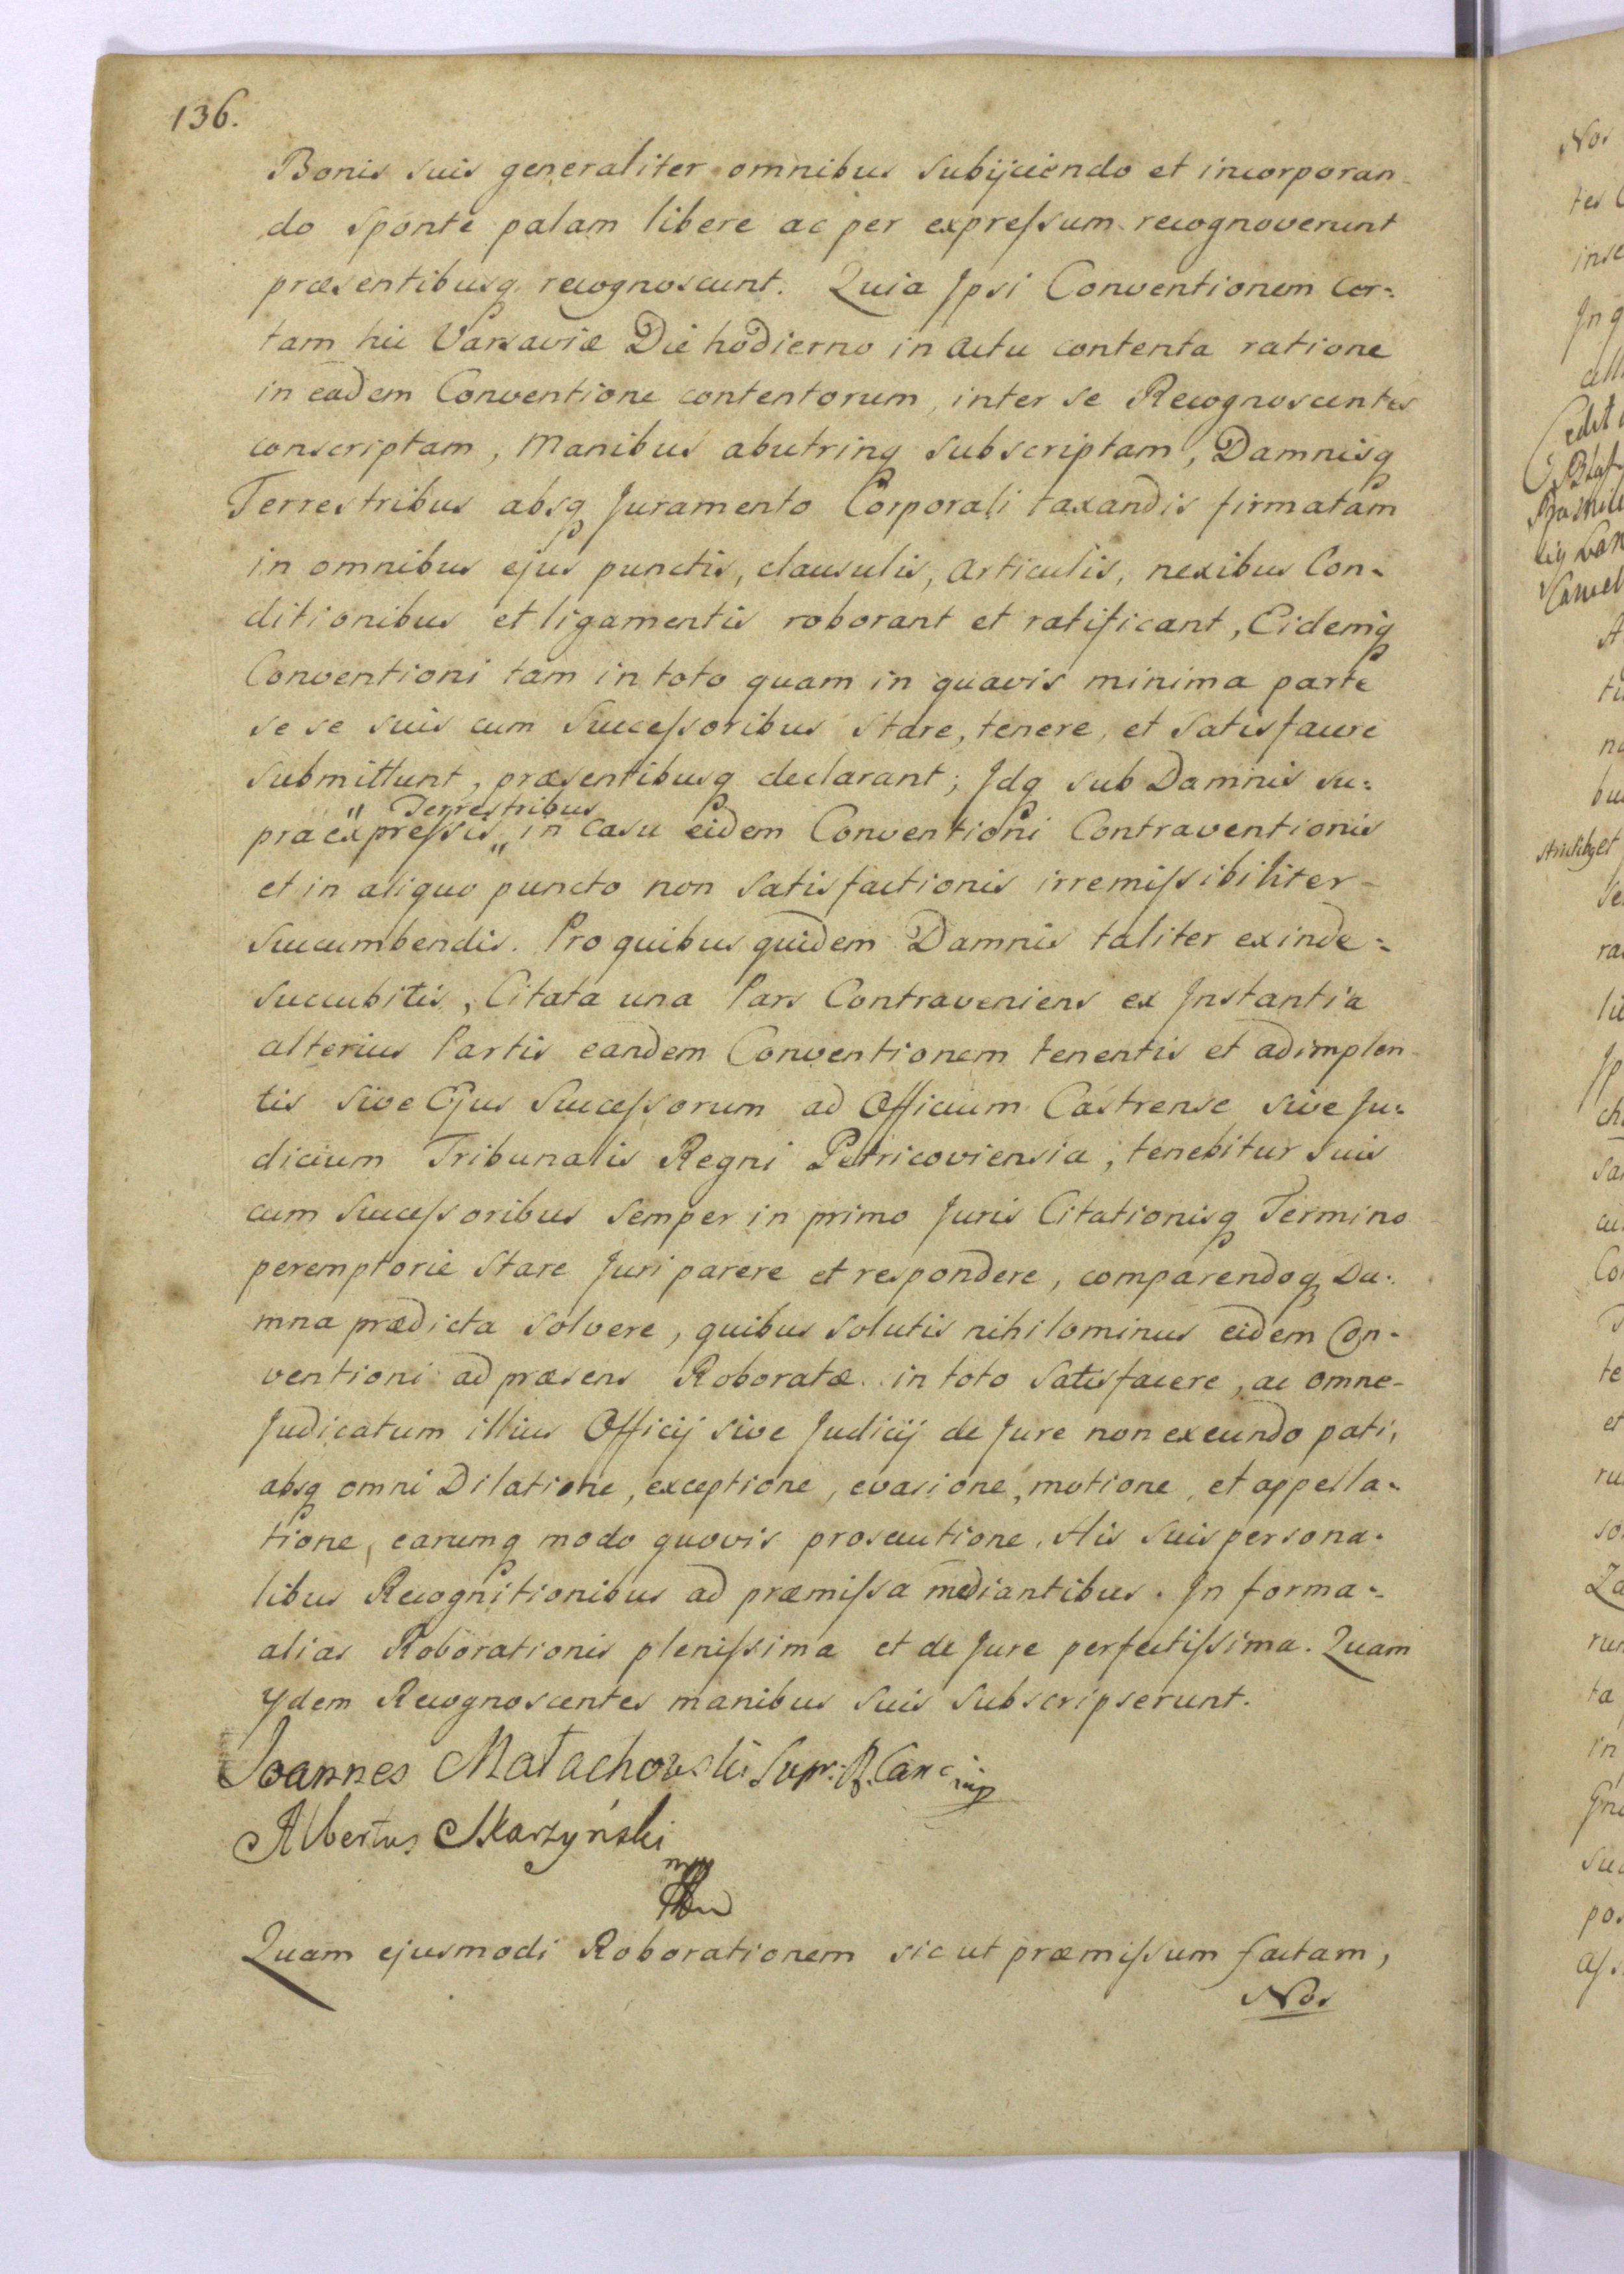 136.
Bonis suis generaliter omnibus subijciendo et incorporan-
do sponte palam libere ac per expreſsum recognoverunt
præsentibusq recognoscunt. Quia Jpsi Conventionem Cer-
tam hic Varsaviæ Die hodierno in actu contenta ratione
in eadem Conventione contentorum, inter se Recognoscentes
conscriptam, Manibus abutrinq subscriptam, Damnisq
Terrestribus absq Juramento Corporali taxandis firmatam
in omnibus ejus punctis, clausulis, articulis, nexibus Con-
ditionibus et ligamentis roborant et ratificant, Eidemq
Conventioni tam in toto quam in quavis minima parte
se se suis cum Succeſsoribus Stare, tenere, et Satisfacere
Submittunt, præsentibusq declarant; Jdq sub Damnis su-
" Terrestribus
praexpreſsis „ in casu eidem Conventioni Contraventionis
et in aliquo puncto non Satisfactionis irremiſsibiliter
Succumbendis. Pro quibus quidem Damnis taliter exinde
Succubitis, Citata una Pars Contraveniens ex Jnstantia
alterius Partis eandem Conventionem tenentis et adimplen-
tis sive Ejus Succeſsorum ad Officium Castrense sive Ju-
dicium Tribunalis Regni Petricoviensia, tenebitur suis
cum Succeſsoribus Semper in primo Juris Citationisq Termino
peremptorie Stare Juri parere et respondere, comparendoq Da-
mna prædicta solvere, quibus solutis nihilominus eidem Con-
ventioni ad præsens Roboratæ in toto Satisfacere, ac omne
Judicatum illius Officij sive Judicij de Jure non exeundo pati,
absq omni Dilatione, exceptione, evasione, motione, et appella-
tione, earumq modo quovis prosecutione. His suis persona-
libus Recognitionibus ad præmiſsa mediantibus. Jn forma
alias Roborationis pleniſsima et de Jure perfectiſsima. Quam
Ydem Recognoscentes manibus suis subscripserunt.
Joannes Małachowski Supr: R. Canc mp
Albertus Skarzyński
mp
Quam ejusmodi Roborationem sic ut præmiſsum factam,
Nos